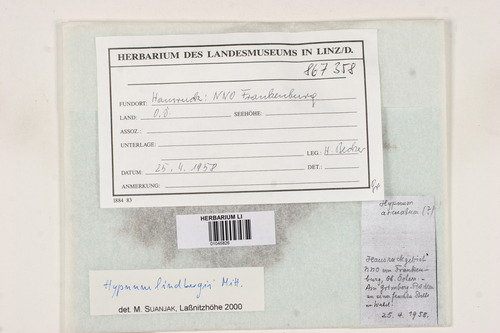 HERBARIUM DES LANDESMUSEUMS IN LINZ/D.
867 358
FUNDORT: Hausruck: NNO Frankenburg
LAND: O.Ö. SEEHÖHE:
ASSOZ.:
UNTERLAGE:
LEG.: H. Becker
DATUM: 25. 4. 1958 DET.:
ANMERKUNG:
8884 83
HERBARIUM LI
01045826
Hypnum lindbergii Mitt.
det. M. SUANJAK, Laßnitzhöhe 2000
Hypnum
arcuatum (?)
Hausruckgebiet
NNO von Franken-
burg,
an einer feuchten Stelle
im Wald.
25. 4. 1958.